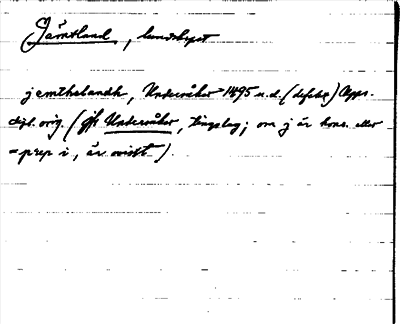 Jämtland, landskapet
jemthelandh, Undersåker 1495 u.d. (defekt) Upps.
dipl. orig. (jfr Undersåker, tingslag; om j är kons. eller
= prep i, är ovisst).